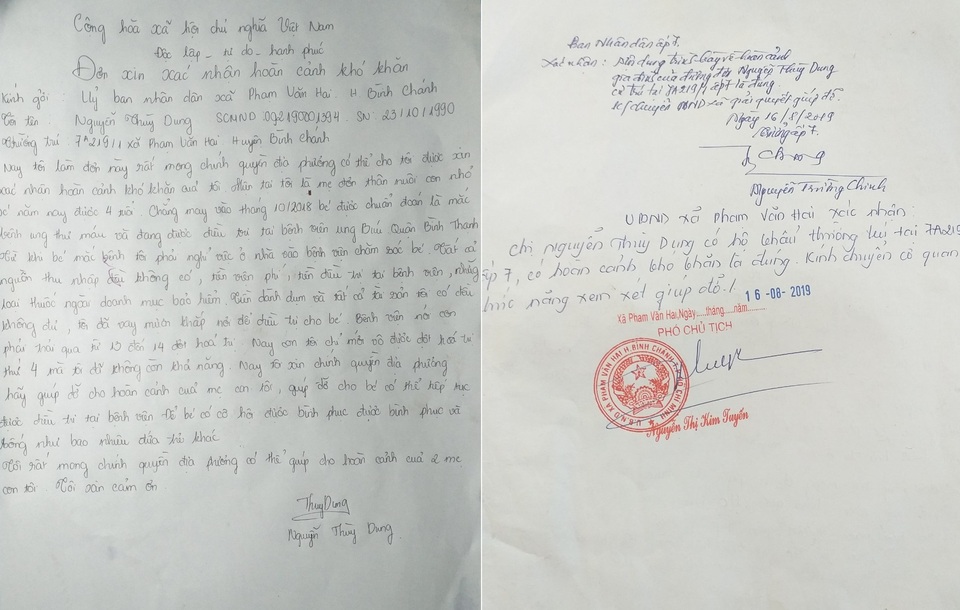 Cộng hòa xã hội chủ nghĩa Việt Nam
Độc lập - tự do - hạnh phúc
Đơn xin xác nhận hoàn cảnh khó khăn
Kính gửi Uỷ ban nhân dân xã Phạm Văn Hai. H. Bình Chánh
Tôi tên Nguyễn Thùy Dung SCMND 092190001394. SN: 23/10/1990
Thường trú: 7A219/1 xã Phạm Văn Hai. Huyện Bình Chánh
Nay tôi làm đơn này rất mong chính quyền địa phương có thể cho tôi được xin
xác nhận hoàn cảnh khó khăn của tôi. Hiện tại tôi là mẹ đơn thân nuôi con nhỏ
bé năm nay được 4 tuổi. Chẳng may vào tháng 10/2018 bé được chuẩn đoán là mắc
bệnh ung thư máu và đang được điều trị tại bệnh viện ung Bứu Quận Bình Thạnh
Từ khi bé mắc bệnh tôi phải nghỉ việc ở nhà vào bệnh viện chăm sóc bé. Tất cả
nguồn thu nhập đều không có, tiền viện phí, tiền điều trị tại bệnh viện, những
loại thuốc ngoài doanh mục bảo hiểm. Tiền dành dụm và tất cả tài sản tôi có đều
không đủ, tôi đã vay mượn khắp nơi để điều trị cho bé. Bệnh viện nói con
phải trải qua từ 13 đến 14 đợt hoá trị. Nay con tôi chỉ mới vô được đợt hoá trị
thứ 4 mà tôi đã không còn khả năng. Nay tôi xin chính quyền địa phương
hãy giúp đỡ cho hoàn cảnh của mẹ con tôi, giúp đỡ cho bé có thể tiếp tục
được điều trị tại bệnh viện để bé có cơ hội được bình phục được bình phục và
sống như bao nhiêu đứa trẻ khác.
Tôi rất mong chính quyền địa phương có thể giúp cho hoàn cảnh của 2 mẹ
con tôi. Tôi xin cảm ơn.
ThuyDung
Nguyễn Thùy Dung.
Ban Nhân dân ấp 7.
Xác nhận: Nội dung trình bày về hoàn cảnh
gia đình của đương đơn Nguyễn Thùy Dung
cư trú tại 7A219/1 ấp 7 là đúng.
K/chuyển UBND xã giải quyết giúp đỡ.
Ngày 16/8/2019
Trưởng ấp 7.
Nguyễn Trường Chinh
UBND xã Phạm Văn Hai xác nhận
Chị Nguyễn Thùy Dung có hộ khẩu thường trú tại 7A219
ấp 7, có hoàn cảnh khó khăn là đúng. Kính chuyển cơ quan
chức năng xem xét giúp đỡ./.
16-08-2019
Xã Phạm Văn Hai,Ngày.....tháng.....năm.....
PHÓ CHỦ TỊCH
U.B.N.D XÃ PHẠM VĂN HAI H.BÌNH CHÁNH T.P HỒ CHÍ MINH
Nguyễn Thị Kim Tuyến